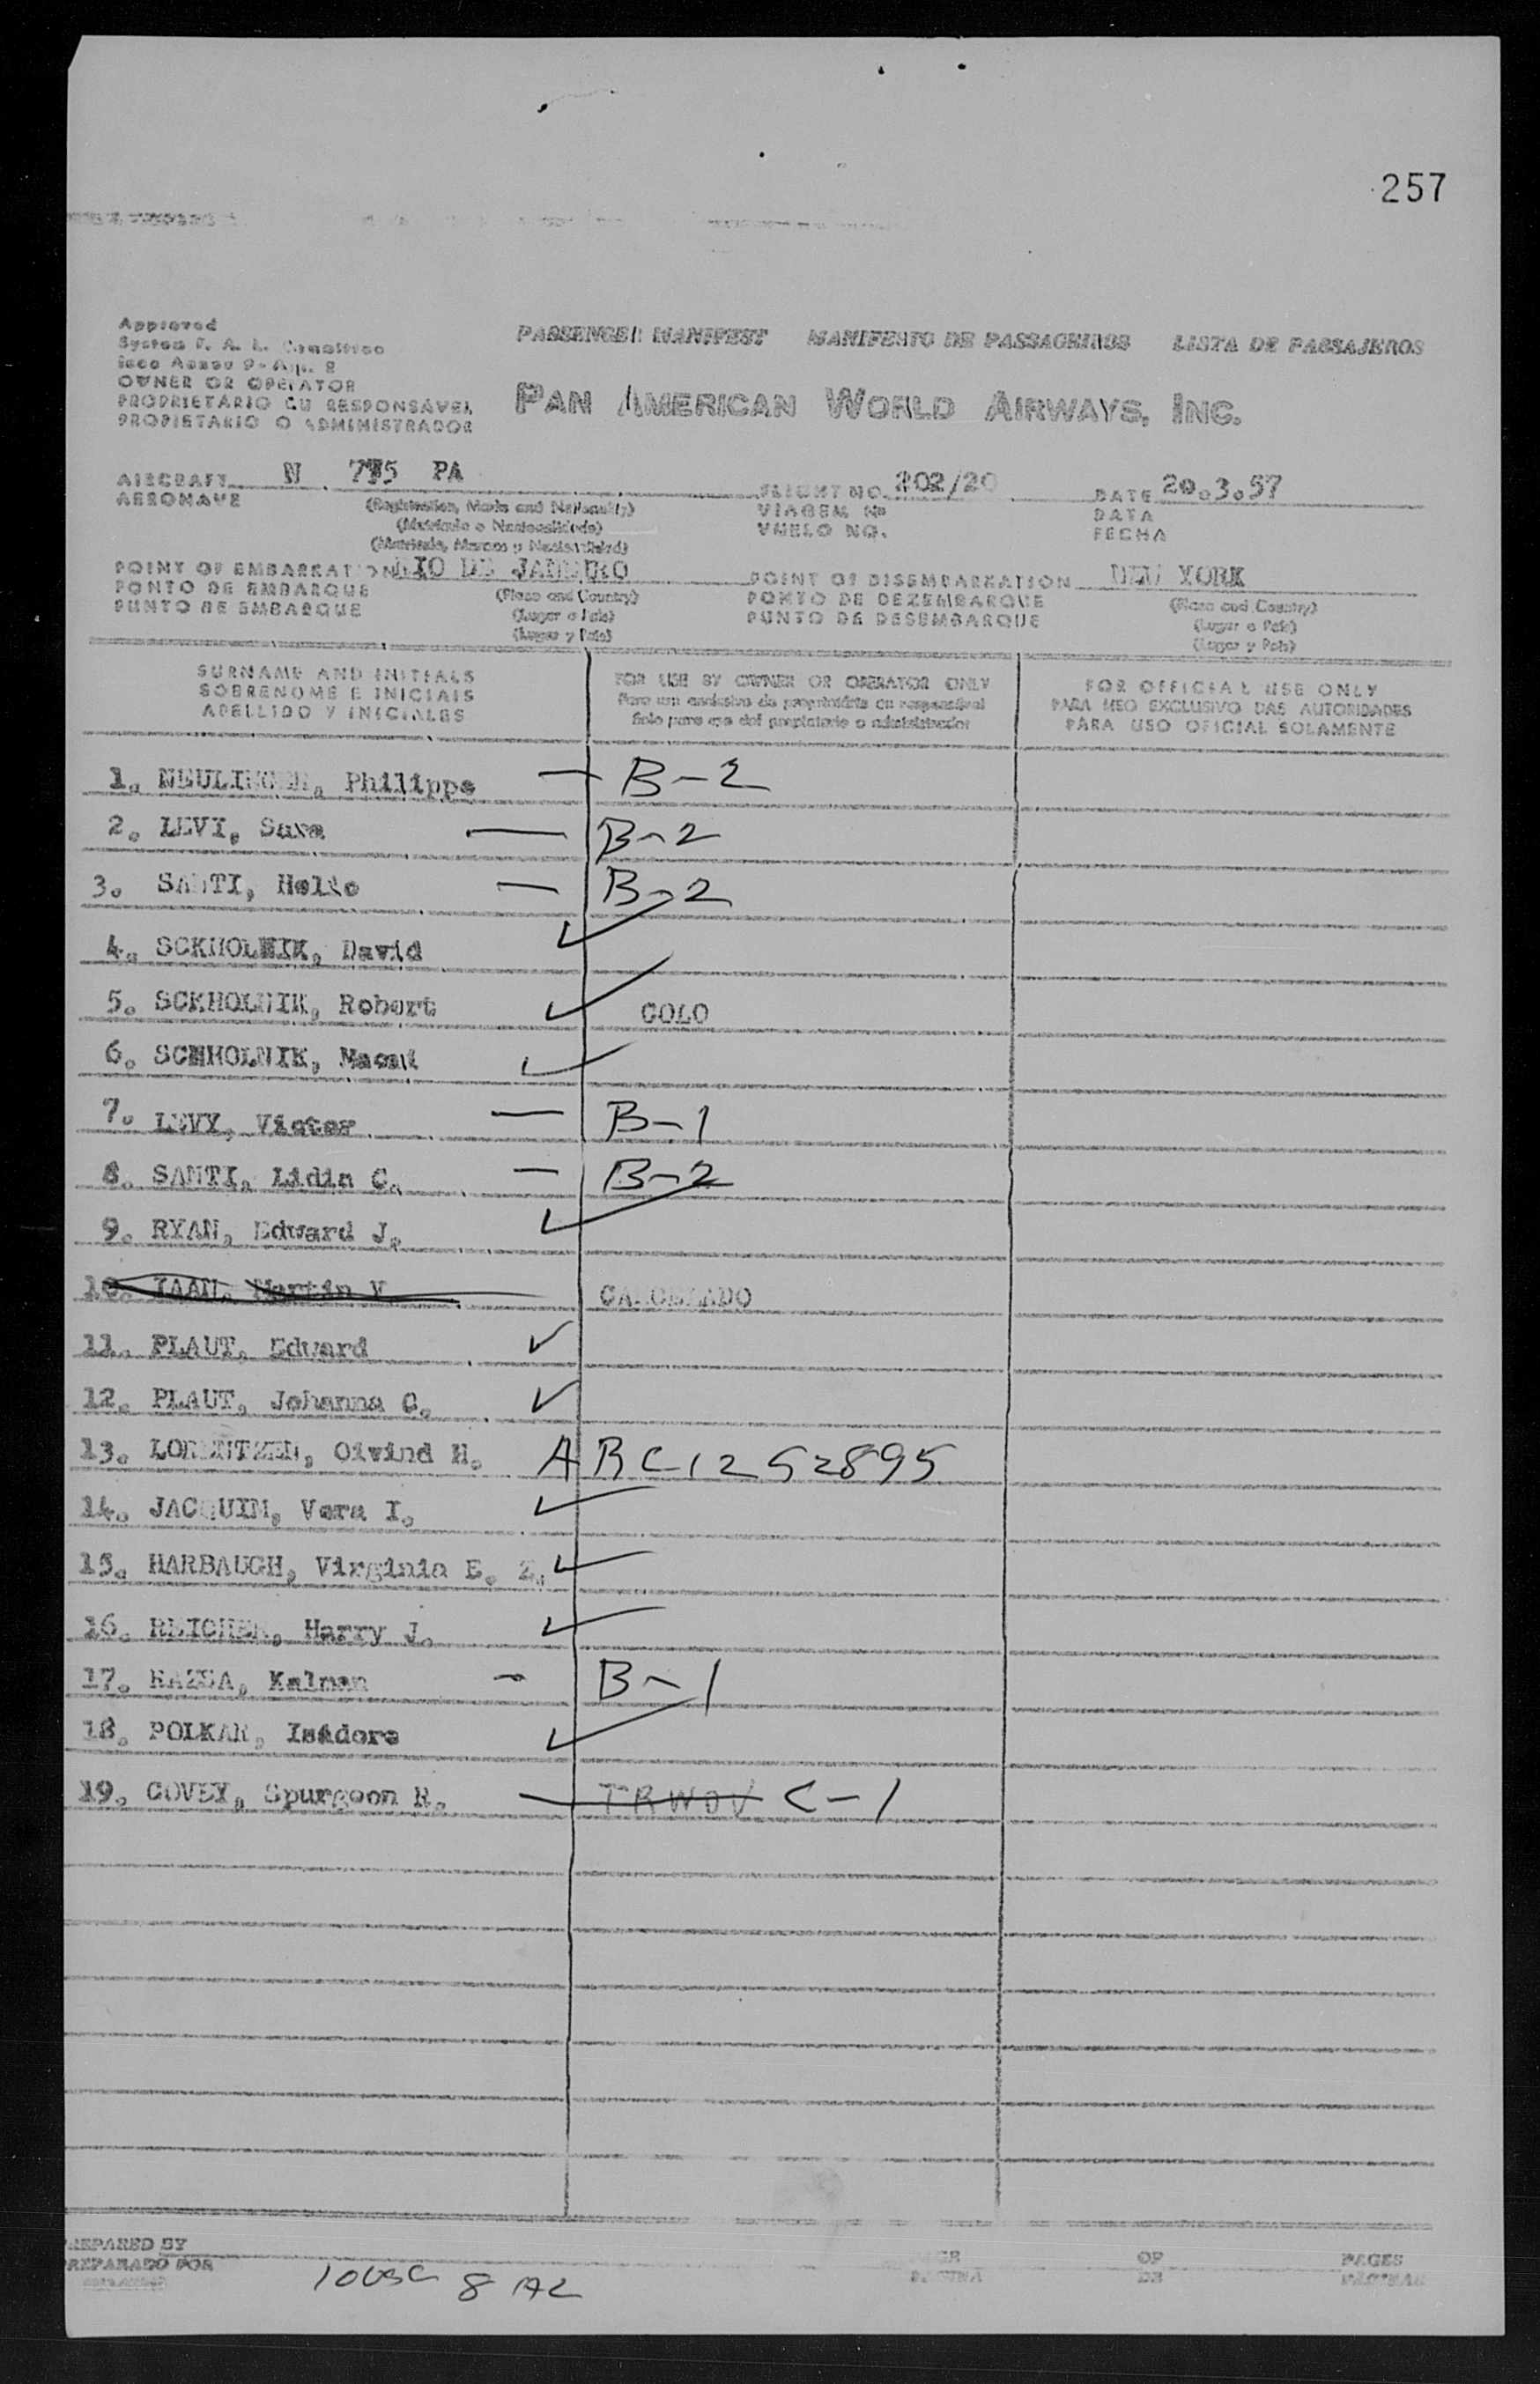 257
Approved
OWNER OR OPERATOR
PROPRIETÁRIO OU RESPONSÁVEL
PROPIETARIO O ADMINISTRADOR
PASSENGER MANIFEST MANIFESTO DE PASSAGEIROS LISTA DE PASAJEROS
PAN AMERICAN WORLD AIRWAYS, INC.
AIRCRAFT N 775 PA
AERONAVE
(Registration, Marks and Nationality)
(Matricula e Nacionalidade)
(Matricula, Marcas y Nacionalidad)
FLIGHT NO. 202/20
VIAGEM Nº
VUELO NO.
DATE 20.3.57
DATA
FECHA
POINT OF EMBARKATION RIO DE JANEIRO
PONTO DE EMBARQUE
PUNTO DE EMBARQUE
(Place and Country)
(Lugar e Pais)
(Lugar y Pais)
POINT OF DISEMBARKATION NEW YORK
PONTO DE DEZEMBARQUE
PUNTO DE DESEMBARQUE
(Place and Country)
(Lugar e Pais)
(Lugar y Pais)
SURNAME AND INITIALS
SOBRENOME E INICIAIS
APELLIDO Y INICIALES
FOR USE BY OWNER OR OPERATOR ONLY
Para uso exclusivo do proprietário ou responsável
Solo para uso del propietario o administrador
FOR OFFICIAL USE ONLY
PARA USO EXCLUSIVO DAS AUTORIDADES
PARA USO OFICIAL SOLAMENTE
1. NEULINGER, Philippe — B-2
2. LEVI, Sara — B-2
3. SANTI, Helio — B-2
4. SCKHOLNIK, David ✓
5. SCKHOLNIK, Robert ✓ COLO
6. SCKHOLNIK, ✓
7. LEVY, Victor — B-1
8. SANTI, Lidia C. — B-2
9. RYAN, Edward J. ✓
10. Martin V CANCELADO
11. PLAUT, Edward ✓
12. PLAUT, Johanna C. ✓
13. LORENTZEN, Oivind H. ARC-1252895
14. JACQUIM, Vera I. ✓
15. HARBAUGH, Virginia E. Z. ✓
16. REICHER, Harry J. ✓
17. Kalman - B-1
18. POLKAR, Isidore ✓
19. COVEY, Spurgeon R. — TRWOV C-1
PREPARED BY
PREPARADO POR
10USC 8 A2
PAGE OF PAGES
PAGINA DE PAGINAS